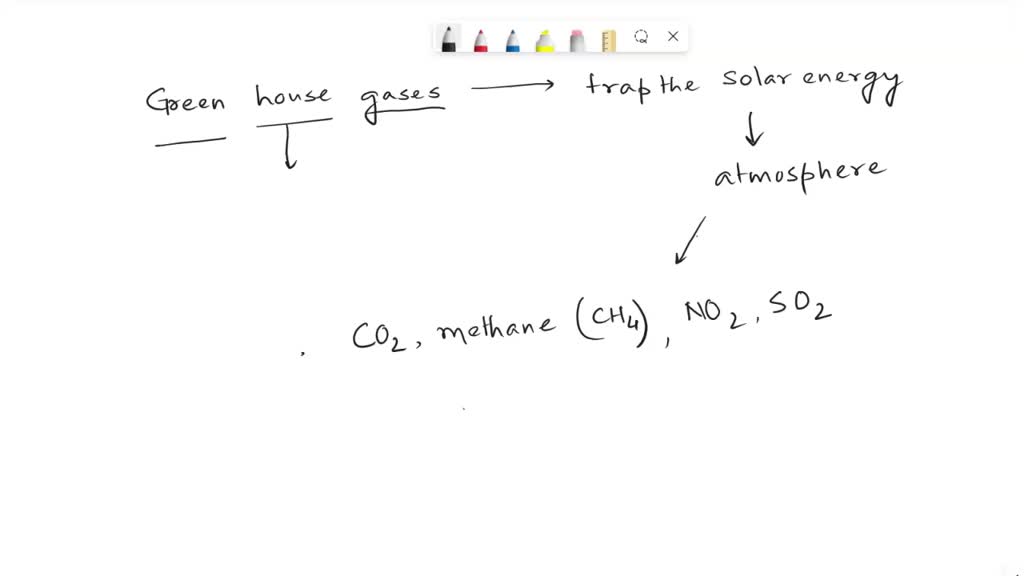 Green house gases → trap the solar energy
↓ ↓
atmosphere
↙
CO₂, methane (CH₄), NO₂, SO₂